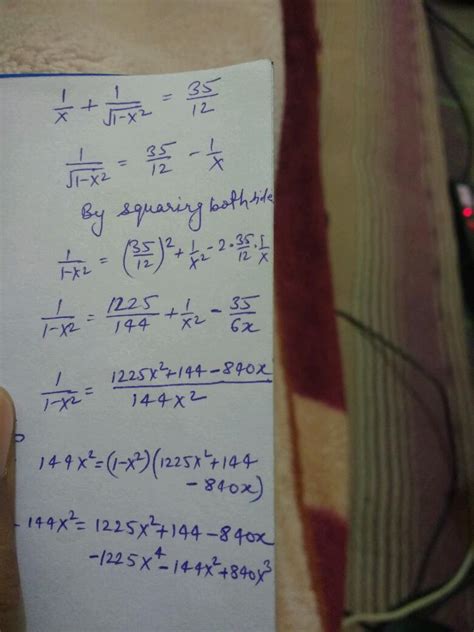 1/x + 1/√(1-x²) = 35/12
1/√(1-x²) = 35/12 - 1/x
By squaring both side
1/(1-x²) = (35/12)² + 1/x² - 2·35/12·1/x
1/(1-x²) = 1225/144 + 1/x² - 35/6x
1/(1-x²) = (1225x²+144-840x)/144x²
144x² = (1-x²)(1225x²+144
-840x)
144x² = 1225x²+144-840x
-1225x⁴-144x²+840x³